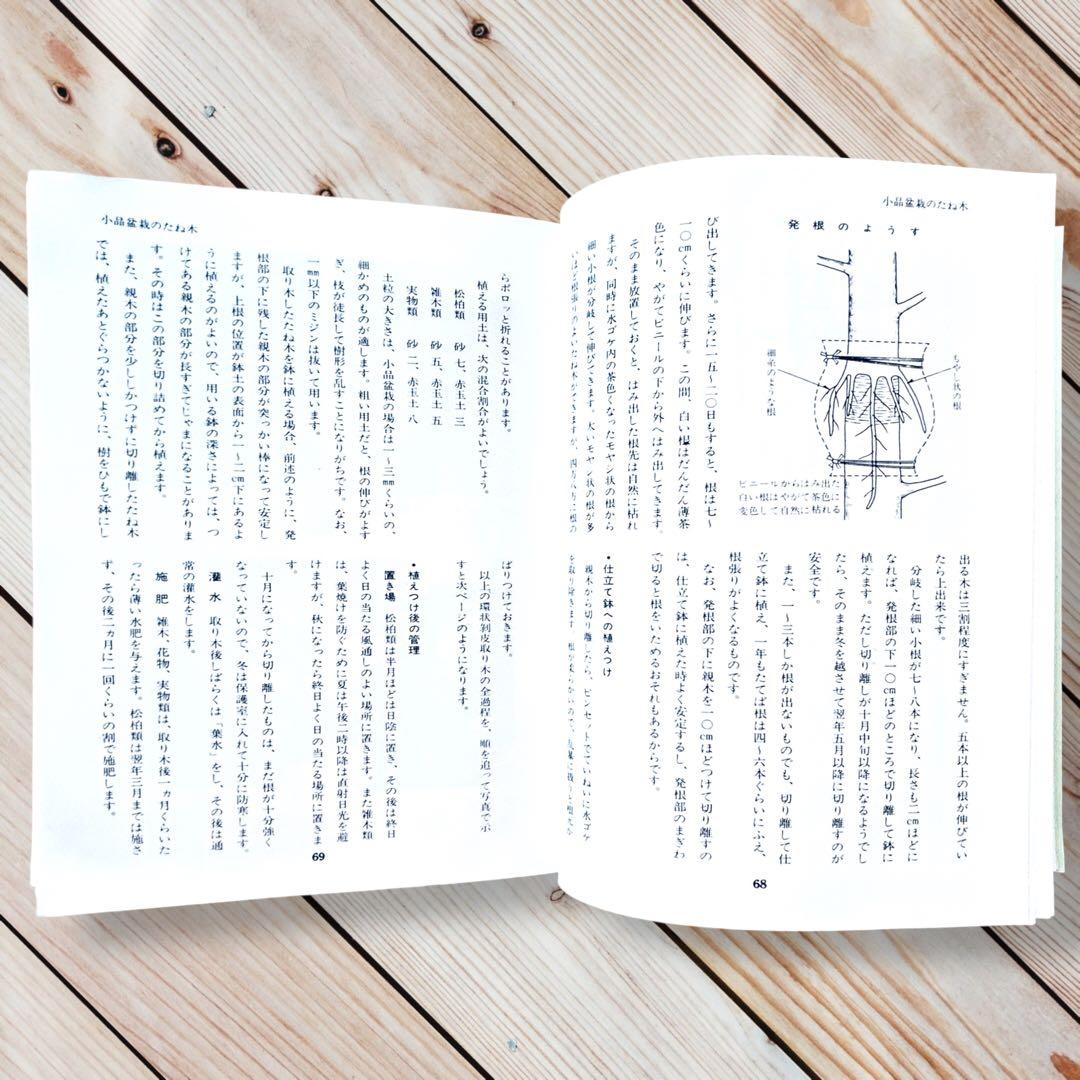 小品盆栽のたね木
発根のようす
もやし状の根
細形のような根
ビニールからはみ出た
白い根はやがて茶色に
変色して自然に枯れる
び出してきます。さらに一五〜二〇日もすると、根は七〜
一〇cmくらいに伸びます。この間、白い根はだんだん薄茶
色になり、やがてビニールの下から外へはみ出してきます。
そのまま放置しておくと、はみ出した根先は自然に枯れ
ますが、同時に水ゴケ内の茶色くなったモヤシ状の根から
細い小根が分岐して伸びてきます。太いモヤシ状の根が多
いほど根張りのよいたね木ができますが、四方八方に根の
出る木は三割程度にすぎません。五本以上の根が伸びてい
たら上出来です。
分岐した細い小根が七〜八本になり、長さも二cmほどに
なれば、発根部の下一〇cmほどのところで切り離して鉢に
植えます。ただし切り離しが十月中旬以降になるようでし
たら、そのまま冬を越させて翌年五月以降に切り離すのが
安全です。
また、一〜三本しか根が出ないものでも、切り離して仕
立て鉢に植え、一年もたてば根は四〜六本ぐらいにふえ、
根張りがよくなるものです。
なお、発根部の下に親木を一〇cmほどつけて切り離すの
は、仕立て鉢に植えた時よく安定するし、発根部のまぎわ
で切ると根をいためるおそれもあるからです。
・仕立て鉢への植えつけ
親木から切り離したら、ピンセットでていねいに水ゴケ
を取り除きます。根がやわらかいので、乱暴に扱うと根元か
68
小品盆栽のたね木
らポロッと折れることがあります。
植える用土は、次の混合割合がよいでしょう。
松柏類 砂 七、赤玉土 三
雑木類 砂 五、赤玉土 五
実物類 砂 二、赤玉土 八
土粒の大きさは、小品盆栽の場合は一〜三mmくらいの、
細かめのものが適します。粗い用土だと、根の伸びがよす
ぎ、枝が徒長して樹形を乱すことになりがちです。なお、
一mm以下のミジンは抜いて用います。
取り木したたね木を鉢に植える場合、前述のように、発
根部の下に残した親木の部分が突っかい棒になって安定し
ますが、上根の位置が鉢土の表面から一〜二cm下にあるよ
うに植えるのがよいので、用いる鉢の深さによっては、つ
けてある親木の部分が長すぎてじゃまになることがありま
す。その時はこの部分を切り詰めてから植えます。
また、親木の部分を少ししかつけずに切り離したたね木
では、植えたあとぐらつかないように、樹をひもで鉢にし
ばりつけておきます。
以上の環状剥皮取り木の全過程を、順を追って写真で示
すと次ページのようになります。
・植えつけ後の管理
置き場 松柏類は半月ほどは日陰に置き、その後は終日
よく日の当たる風通しのよい場所に置きます。また雑木類
は、葉焼けを防ぐために夏は午後二時以降は直射日光を避
けますが、秋になったら終日よく日の当たる場所に置きま
す。
十月になってから切り離したものは、まだ根が十分強く
なっていないので、冬は保護室に入れて十分に防寒します。
灌水 取り木後しばらくは「葉水」をし、その後は通
常の灌水をします。
施肥 雑木、花物、実物類は、取り木後一ヵ月くらいた
ったら薄い水肥を与えます。松柏類は翌年三月までは施さ
ず、その後二ヵ月に一回くらいの割で施肥します。
69